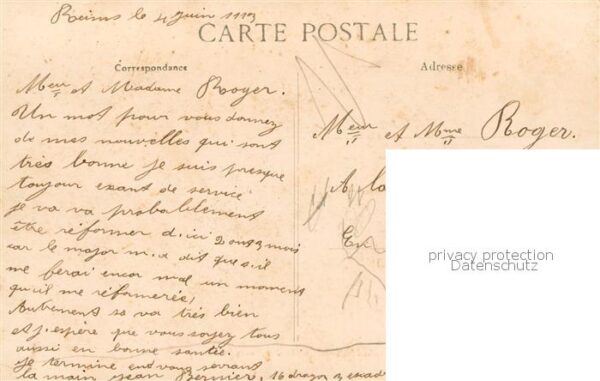 Reims le 4 Juin 1913
CARTE POSTALE
Correspondance
Adresse
Meur et Madame Royer.
Un mot pour vous donnez
de mes nouvelles qui sont
très bonne je suis presque
toujour exant de service
je va va probablement
être réformer d'ici 2 out 3 mois
car le major m.a dit que s.il
me ferai encor mal un moment
qu'il me réformerée,
Autrement sa va très bien
et j.espère que vous soyez tous
aussi en bonne santée.
je termine end vous serrant
la main Jean Bernier, 16 dragon 2 escad
Meur et Mme Roger.
A la
privacy protection
Datenschutz